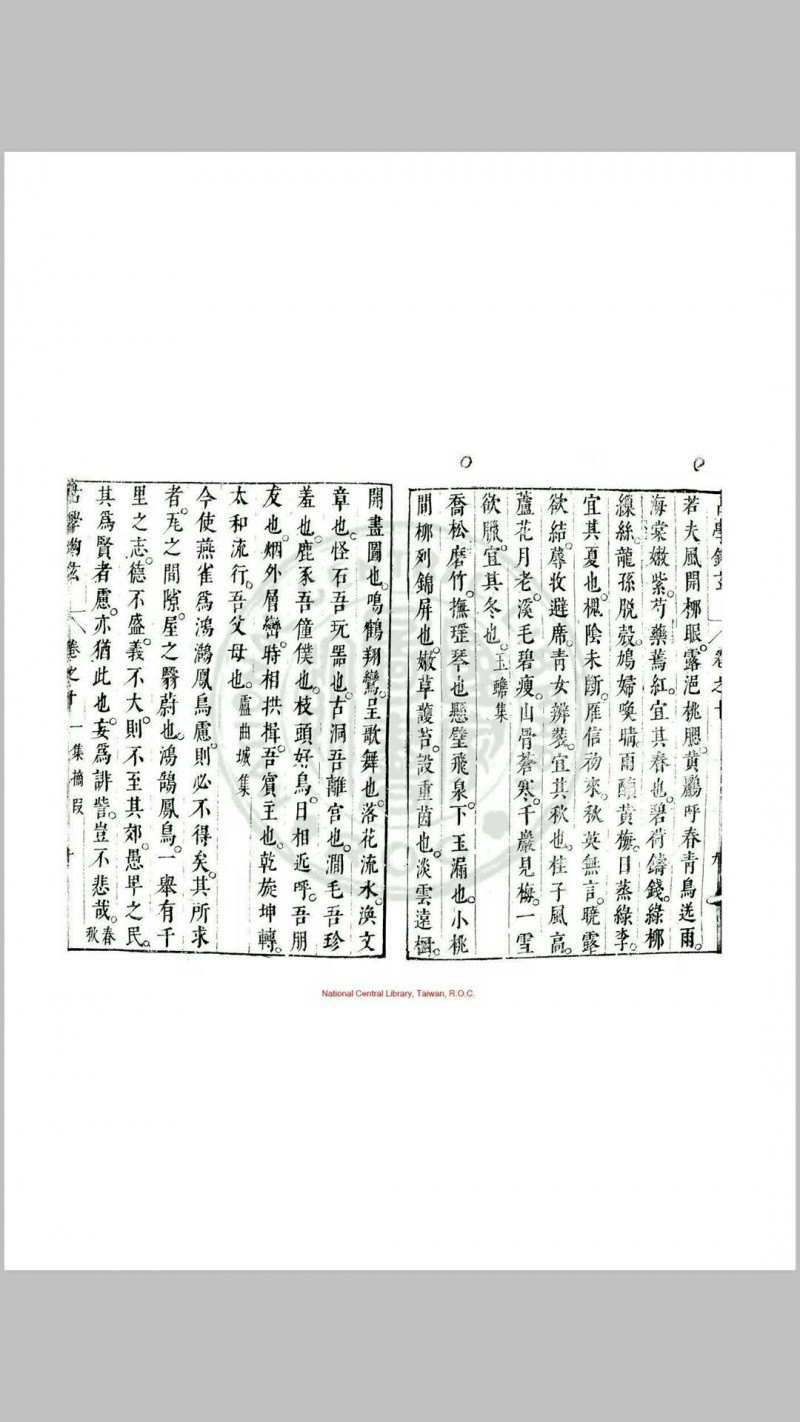 若夫風開柳眼露浥桃腮黄鸝呼春青鳥送雨
海棠嫩紫芍藥蔫紅宜其春也碧荷鑄錢綠柳
繅絲龍孫脫殼鳩婦喚晴雨釀黄梅日蒸綠李
宜其夏也槐陰未斷雁信初來秋英無言曉露
欲結蓐收避席青女辨裝宜其秋也桂子風高
蘆花月老溪毛碧瘦山骨蒼寒千巖見梅一雪
欲臘宜其冬也玉蟾集
喬松磨竹撫瑶琴也懸壁飛泉下玉漏也小桃
間柳列錦屏也嫩草護苔設重茵也淡雲遠樹
開畫圖也鳴鶴翔鸞呈歌舞也落花流水渙文
章也怪石吾玩器也古洞吾離宫也澗毛吾珍
羞也鹿豕吾僮僕也枝頭好鳥日相近呼吾朋
友也烟外層巒時相拱揖吾賓主也乾旋坤轉
太和流行吾父母也盧曲城集
今使燕雀爲鴻鵠鳳鳥慮則必不得矣其所求
者瓦之間隙屋之翳蔚也鴻鵠鳳鳥一舉有千
里之志德不盛義不大則不至其郊愚卑之民
其爲賢者慮亦猶此也妄爲誹訾豈不悲哉春秋
卷之十一集摘段 十
National Central Library, Taiwan, R.O.C.